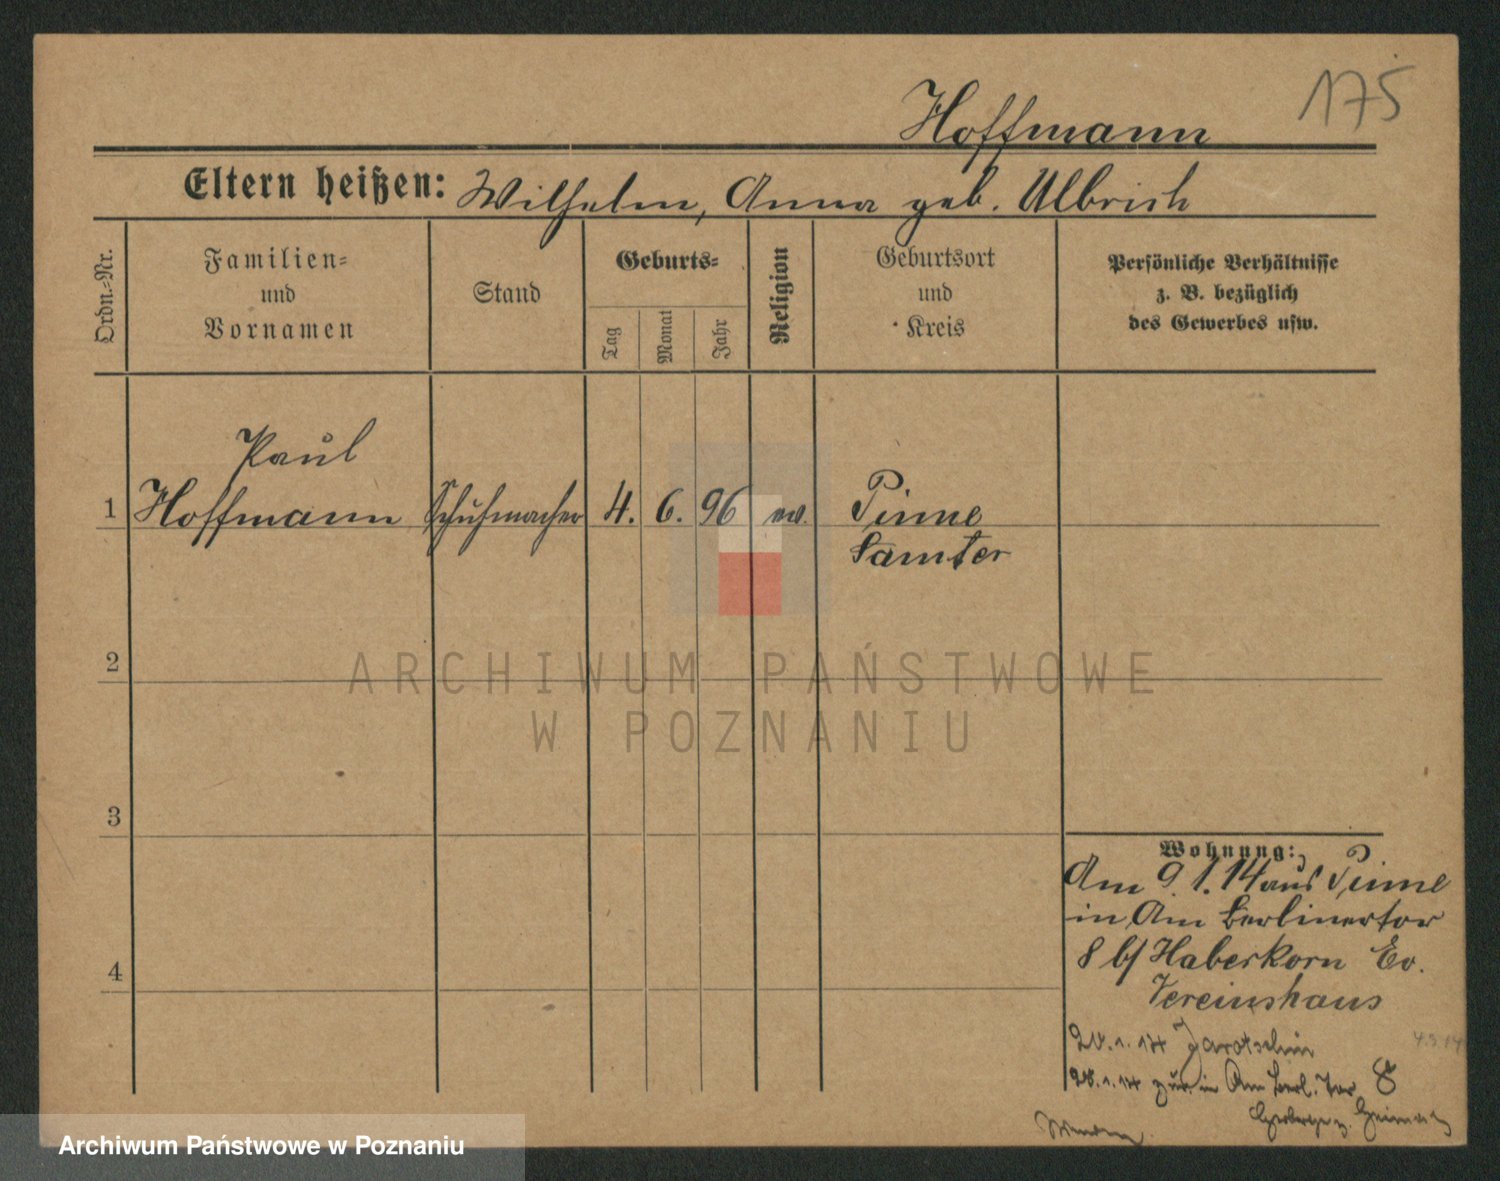 175
Hoffmann
Eltern heißen: Wilhelm, Anna geb. Ulbrich
Ordn.=Nr.
Familien=
und
Vornamen
Stand
Geburts=
Tag
Monat
Jahr
Religion
Geburtsort
und
Kreis
Persönliche Verhältnisse
z. B. bezüglich
des Gewerbes usw.
Paul
1 Hoffmann Schuhmacher 4. 6. 96 ev. Pinne
Samter
2
3
4
ARCHIWUM PAŃSTWOWE
W POZNANIU
Wohnung:
Am 9.1.14 aus Pinne
in Am Berlinertor
8 b/ Haberkorn Ev.
Vereinshaus
20.1.14 Jarotschin
28.1.14 zur. in Am Berl. Tor 8
Herberge z. Heimat
Wenden
Archiwum Państwowe w Poznaniu